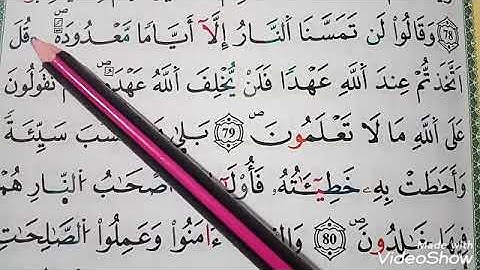 78 وَقَالُوا۟ لَن تَمَسَّنَا اَ۬لنَّارُ إِلَّآ أَيَّامٗا مَّعْدُودَةٗۖ قُلَ
اَتَّخَذتُّمْ عِندَ اَ۬للَّهِ عَهْدٗا فَلَنْ يُّخْلِفَ اَ۬للَّهُ عَهْدَهُۥٓۖ تَقُولُونَ
عَلَى اَ۬للَّهِ مَا لَا تَعْلَمُونَۖ 79 بَلَىٰ سَيِّئَةٗ
وَأَحَٰطَتْ بِهِۦ خَطِيٓـَٰٔتُهُۥ أَصْحَٰبُ اُ۬لنَّارِ هُمْ
فِيهَا خَٰلِدُونَۖ 80 ءَامَنُوا۟ وَعَمِلُوا۟ اُ۬لصَّٰلِحَٰتِ
Made with
VideoShow